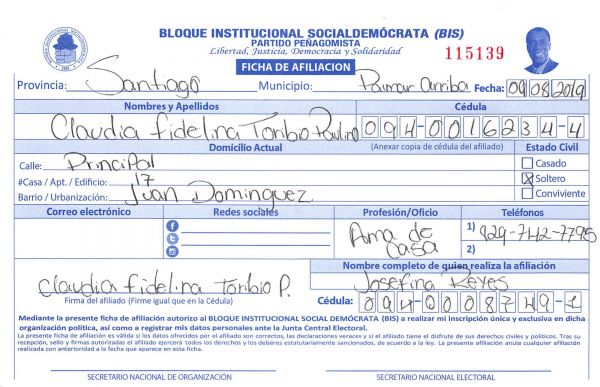 BLOQUE INSTITUCIONAL SOCIALDEMÓCRATA (BIS)
PARTIDO PEÑAGOMISTA
Libertad, Justicia, Democracia y Solidaridad
115139
FICHA DE AFILIACION
Provincia: Santiago Municipio: Palmar arriba Fecha: 09 08 2019
Nombres y Apellidos Cédula
Claudia fidelina Toribio Paulino 094-0016234-4
Domicilio Actual (Anexar copia de cédula del afiliado) Estado Civil
Calle: Principal Casado
#Casa / Apt. / Edificio: 17 X Soltero
Barrio / Urbanización: Juan Dominguez Conviviente
Correo electrónico Redes sociales Profesión/Oficio Teléfonos
Ama de casa 1) 829-742-7795
2)
Nombre completo de quien realiza la afiliación
Claudia fidelina Toribio P. Josefina Reyes
Firma del afiliado (Firme igual que en la Cédula) Cédula: 094-0008749-1
Mediante la presente ficha de afiliación autorizo al BLOQUE INSTITUCIONAL SOCIAL DEMÓCRATA (BIS) a realizar mi inscripción única y exclusiva en dicha
organización política, así como a registrar mis datos personales ante la Junta Central Electoral.
La presente ficha de afiliación es válida si los datos ofrecidos por el afiliado son correctos, las declaraciones veraces y si el afiliado tiene el disfrute de sus derechos civiles y políticos. Tras su
recepción, sello y firmas autorizadas el afiliado ejercerá todos los derechos y los deberes estatutariamente sancionados, de acuerdo a la ley. La presente afiliación anula cualquier afiliación
realizada con anterioridad a la fecha que aparece en esta ficha.
SECRETARIO NACIONAL DE ORGANIZACIÓN SECRETARIO NACIONAL ELECTORAL